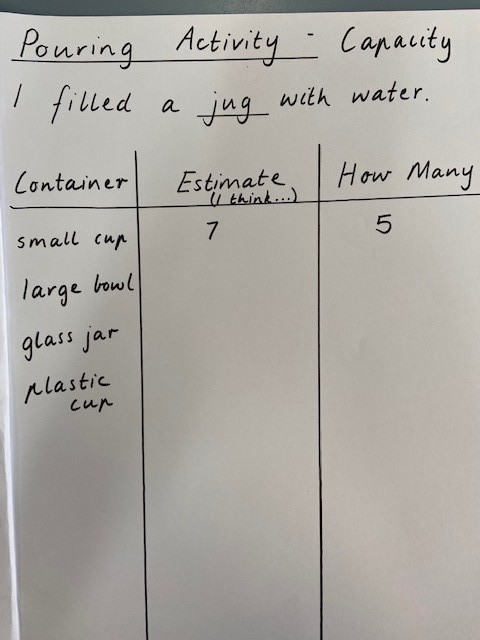 Pouring Activity - Capacity
I filled a jug with water.
Container Estimate How Many
(I think...)
small cup 7 5
large bowl
glass jar
plastic
cup